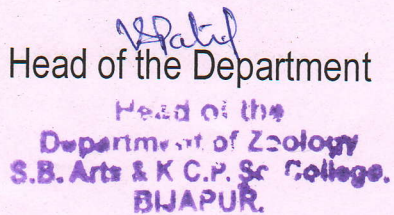 VSPatil
Head of the Department
Head of the
Department of Zoology
S.B. Arts & K C.P. Sc College.
BIJAPUR.